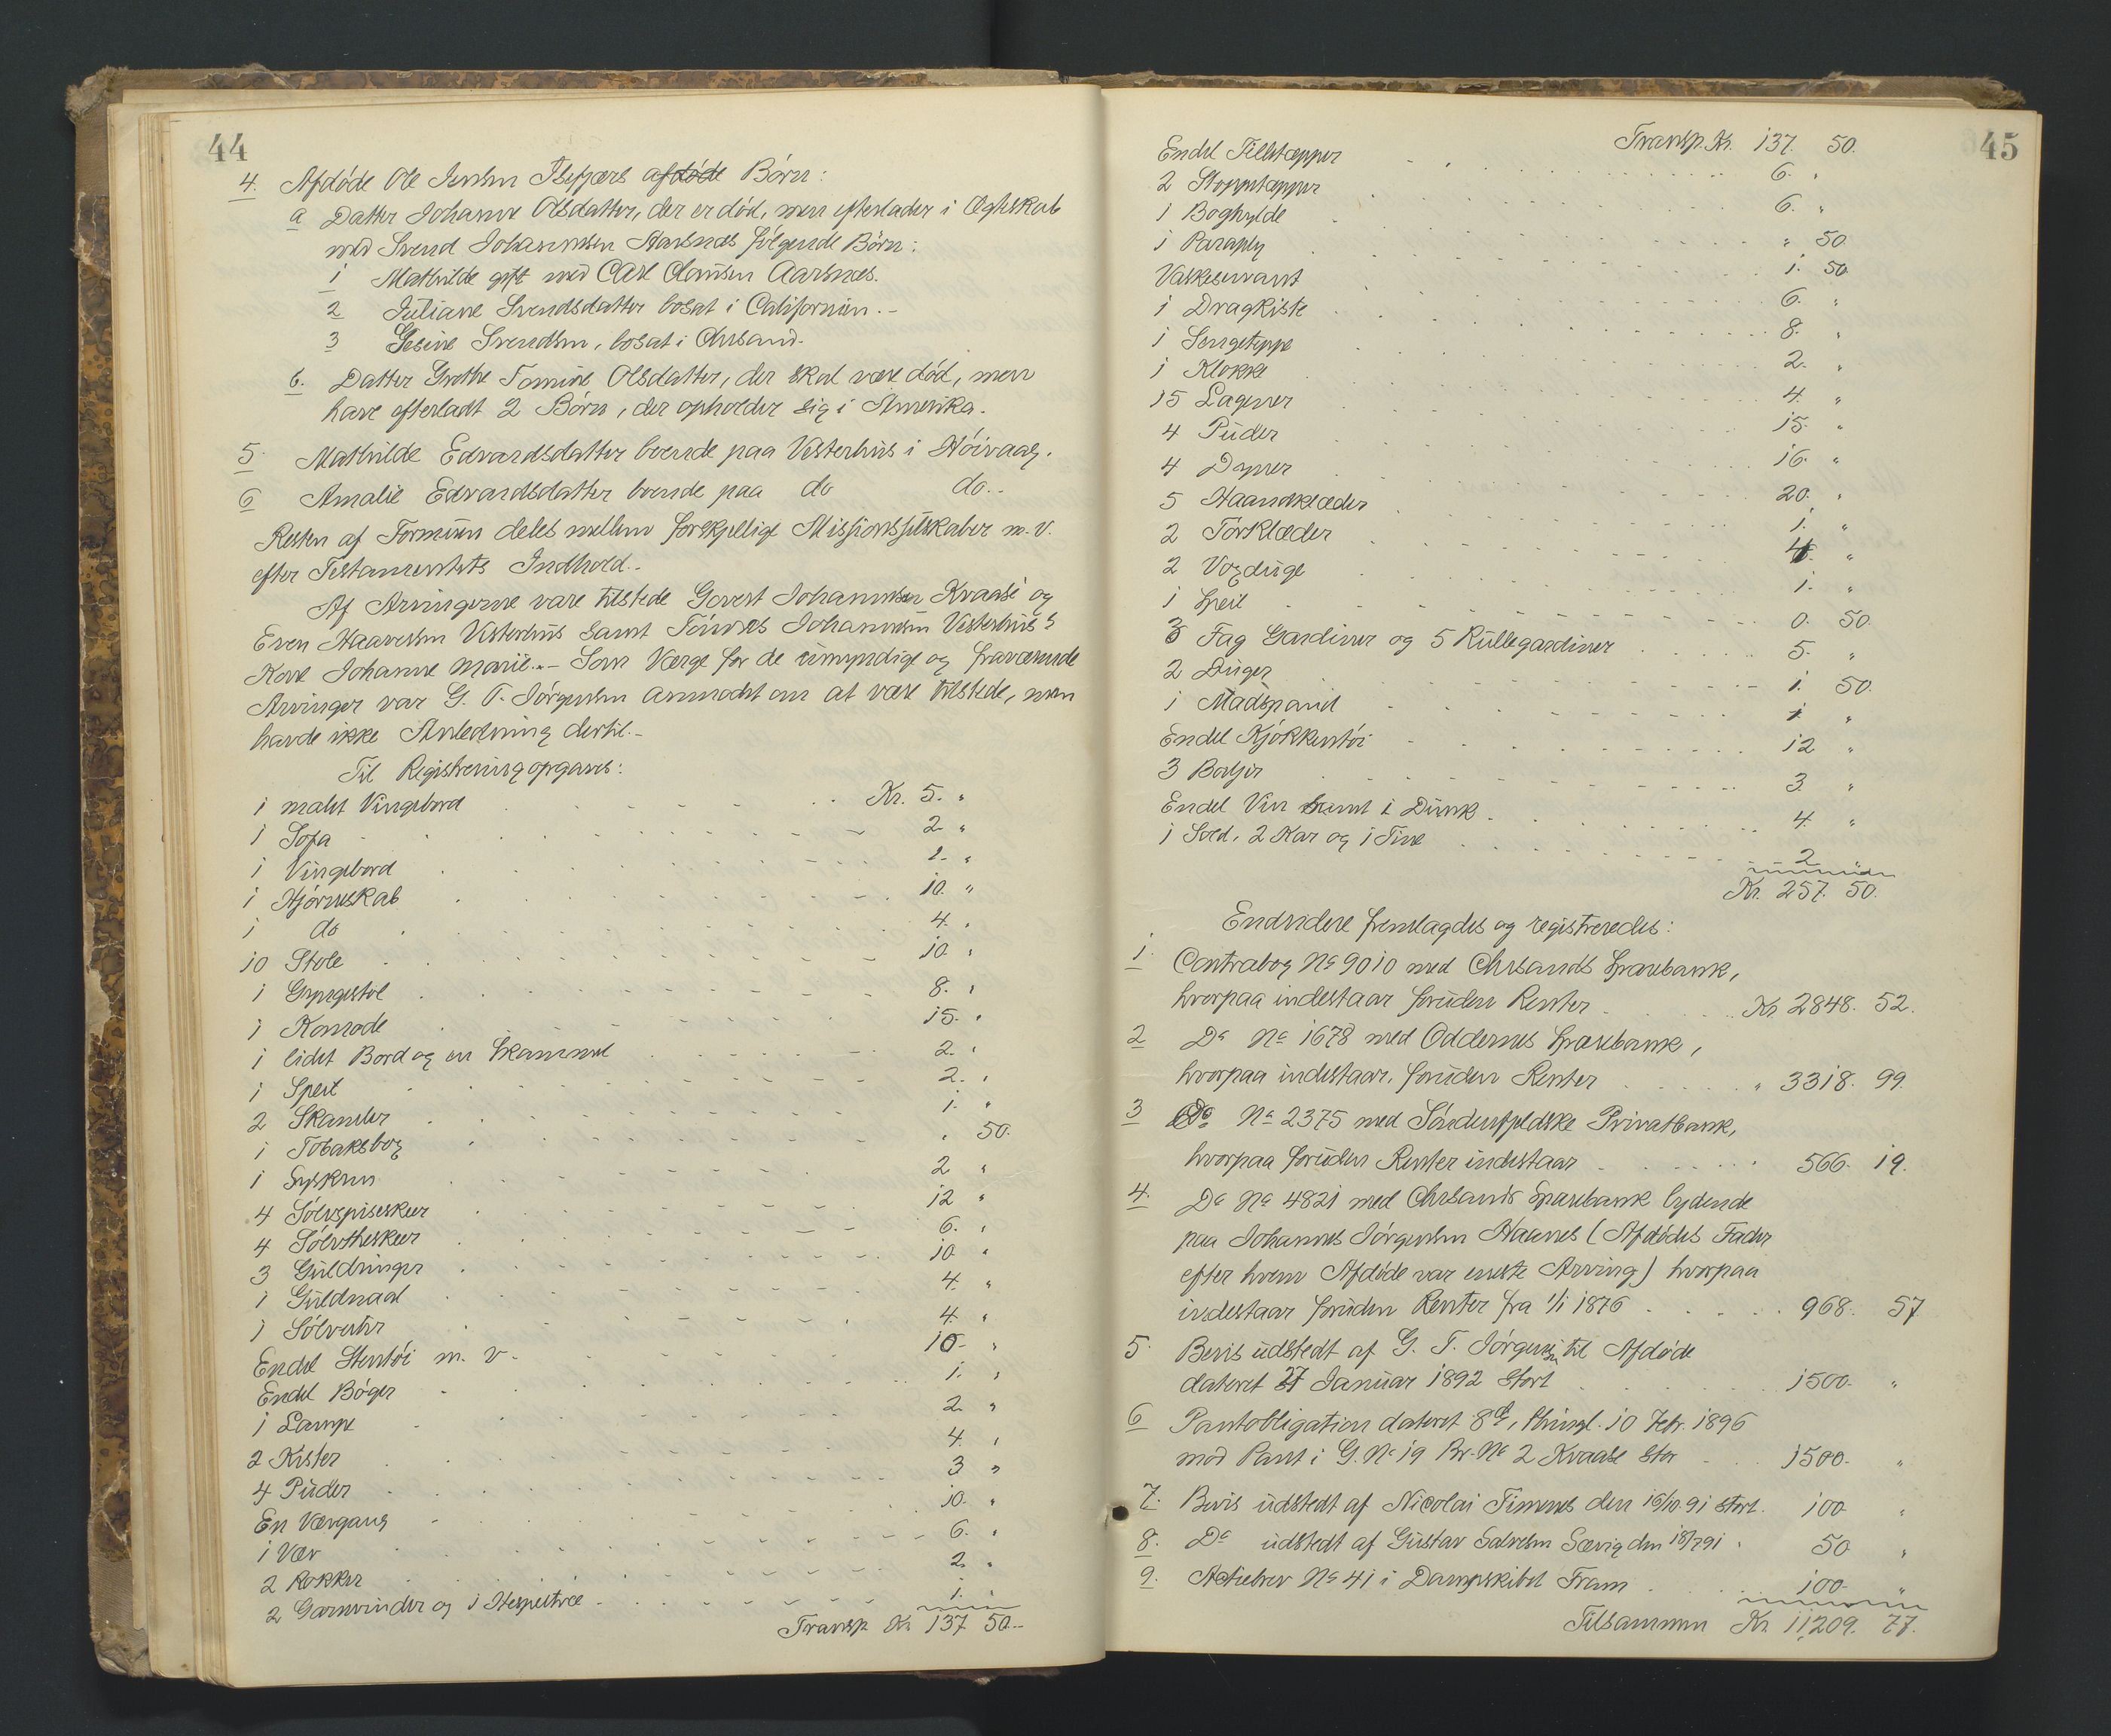 44
4. Afdøde Ole Jensen Isefjærs afdøde Børn:
a Datter Johanne Olsdatter, der er død, men efterlader i Ægteskab
med Svend Johannesen Aarsnes følgende Børn:
1 Mathilde gift med Carl Clausen Aarsnes.
2 Juliane Svendsdatter bosat i Californien.-
3 Gesine Svendsen, bosat i Chrsand.
b. Datter Grethe Tomine Olsdatter, der skal være død, men
have efterladt 2 Børn, der opholder sig i Amerika.
5. Mathilde Edvardsdatter boende paa Vesterhus i Høivaag.
6 Amalie Edvardsdatter boende paa do do..
Resten af Formuen deles mellem forskjellige Missionsselskaber m.v.
efter Testamentets Indhold.-
Af Arvingerne vare tilstede Govert Johannesen Kvaase og
Even Haavesen Vesterhus samt Tønnes Johannesen Vesterhus's
Kone Johanne Marie.- Som Værge for de umyndige og fraværende
Arvinger var G. T. Jørgensen anmodet om at være tilstede, men
havde ikke Anledning dertil.-
Til Registrering opgaves:
1 malet Vingebord Kr. 5. "
1 Sofa 2. "
1 Vingebord 2. "
1 Hjørneskab 10. "
1 do 4. "
10 Stole 10. "
1 Gyngestol 8. "
1 Komode 15. "
1 lidet Bord og en Skammel 2. "
1 Speil 2. "
2 Skamler 1. "
1 Tobaksbog " 50.
1 Syskrin 2 "
4 Sølvspiseskeer 12 "
4 Sølvtheskeer 6. "
3 Guldringer 10. "
1 Guldnaal 4. "
1 Sølvuhr 4. "
Endel Stentøi m. v. 10. "
Endel Bøger 1. "
1 Lampe 2. "
2 Kister 4. "
4 Puder 3 "
En Vævgang 10. "
1 Væv 6. "
2 Rokker 2. "
2 Garnvinder og 1 Hespetræ 1. "
Transp Kr 137 50.-
45
Transp. Kr. 137. 50.
Endel Filletæpper 6. "
2 Stoppetæpper 6. "
1 Boghylde " 50
1 Paraply 1. 50
Vaskeservant 6. "
1 Dragkiste 8. "
1 Sengeteppe 2. "
1 Klokke 4. "
15 Lagener 15. "
4 Puder 16. "
4 Dyner 20. "
5 Haandklæder 1. "
2 Tørklæder 4. "
2 Voxduge 1. "
1 Speil 0. 50.
3 Fag Gardiner og 5 Rullegardiner 5. "
2 Duger 1. 50.
1 Madspand 1 "
Endel Kjøkkentøi 12 "
3 Baljer 3. "
Endel Vin samt 1 Dunk 4. "
1 Sold, 2 Kar og 1 Tine 2 "
Kr. 257. 50.
Endvidere fremlagdes og registreredes:
1. Contrabog No 9010 med Chrsands Sparebank,
hvorpaa indestaar foruden Renter Kr. 2848. 52.
2 Do No 1678 med Oddernes Sparebank,
hvorpaa indestaar, foruden Renter " 3318. 99.
3 Do No 2375 med Søndenfjeldske Privatbank,
hvorpaa foruden Renter indestaar 566. 19.
4. Do No 4821 med Chrsands Sparebank lydende
paa Johannes Jørgensen Haanes (Afdødes Fader
efter hvem Afdøde var eneste Arving) hvorpaa
indestaar foruden Renter fra 1/1 1876 968. 57
5. Bevis udstedt af G. T. Jørgensen til Afdøde
dateret 27 Januar 1892 stort 1500. "
6 Pantobligation dateret 8de, thingl. 10 Febr. 1896
med Pant i G. No 19 Br. No 2 Kvaase stor 1500. "
7. Bevis udstedt af Nicolai Timenes den 16/10.91 stort. 100 "
8. Do udstedt af Gustav Salvesen Sævig den 18/7 91 50 "
9. Actiebrev No 41 i Dampskibet Fram 100. "
Tilsammen Kr. 11,209. 77.